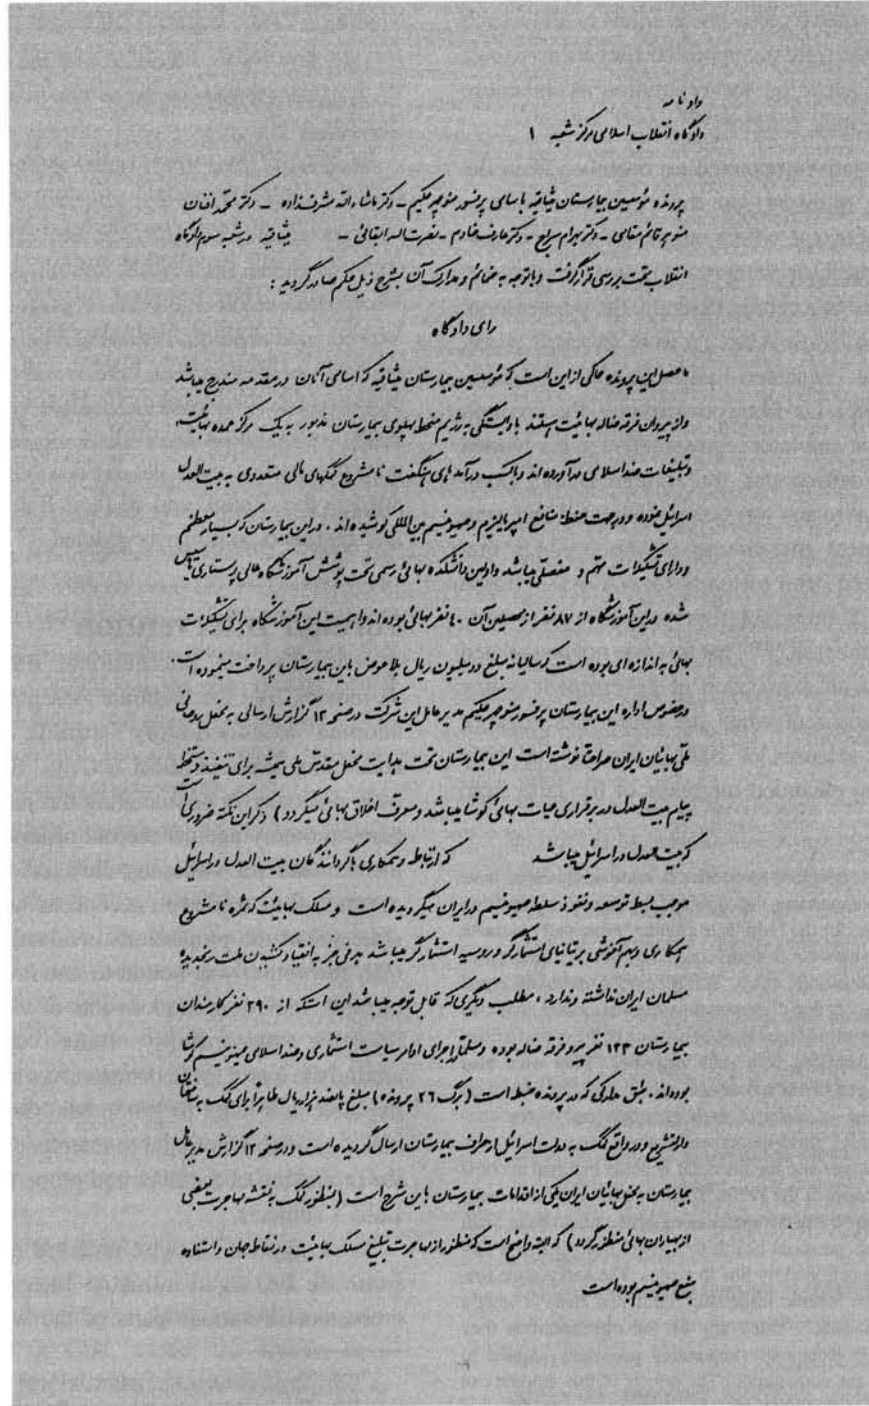 دادنامه
دادگاه انقلاب اسلامی مرکز شعبه ۱
پرونده مؤسسین بیمارستان میثاقیه باسامی پرفسور منوچهر حکیم - دکتر ماشاءالله مشرف‌زاده - دکتر محمد افنان
منوچهر قائم مقامی - دکتر بهرام سراج - دکتر عارف خادم - نصرت اله ایقانی - میثاقیه در شعبه سوم دادگاه
انقلاب تحت بررسی قرار گرفت و با توجه به ضمائم و مدارک آن بشرح ذیل حکم صادر گردید :
رای دادگاه
ماحصل این پرونده حاکی از این است که مؤسسین بیمارستان میثاقیه که اسامی آنان در مقدمه مندرج میباشد
و از پیروان فرقه ضاله بهائیت هستند با وابستگی به رژیم منحط پهلوی بیمارستان مذبور به یک مرکز عمده بهائیت
و تبلیغات ضد اسلامی درآورده اند و با کسب درآمدهای هنگفت نامشروع کمکهای مالی متعددی به بیت العدل
اسرائیل نموده و در جهت حفظ منافع امپریالیزم و صهیونیسم بین المللی کوشیده اند . در این بیمارستان که بسیار معظم
و دارای تشکیلات مهم و مفصلی میباشد و اولین دانشکده بهائی رسمی تحت پوشش آموزشگاه عالی پرستاری تأسیس
شده در این آموزشگاه از ۸۷ نفر از محصلین آن ۴۰ نفر بهائی بوده اند و اهمیت این آموزشگاه برای تشکیلات
بهائی به اندازه ای بوده است که سالیانه مبلغ دو میلیون ریال بلاعوض باین بیمارستان پرداخت مینموده است .
در خصوص اداره این بیمارستان پرفسور منوچهر حکیم مدیر عامل این شرکت در صفحه ۱۲ گزارش ارسالی به محفل روحانی
ملی بهائیان ایران صراحتا نوشته است این بیمارستان تحت هدایت محفل مقدس ملی همیشه برای تنفیذ دستخط
پیام بیت العدل در برقراری حیات بهائی کوشا میباشد و معرف اخلاق بهائی میگردد ) ذکر این نکته ضروری است
که بیت العدل در اسرائیل میباشد که ارتباط و همکاری با گردانندگان بیت العدل در اسرائیل
موجب بسط توسعه و نفوذ سلطه صهیونیسم در ایران میگردیده است و مسلک بهائیت که ثمره نامشروع
همکاری و هم آغوشی بریتانیای استثمارگر و روسیه استثمارگر میباشد هدفی جز به انقیاد کشیدن ملت رنجدیده
مسلمان ایران نداشته و ندارد ، مطلب دیگری که قابل توجه میباشد این استکه از ۲۹۰ نفر کارمندان
بیمارستان ۱۲۳ نفر پیرو فرقه ضاله بوده و اجرای اوامر سیاست استثماری و ضد اسلامی صهیونیسم کوشا
بوده‌اند . طبق مدارکی که در پرونده ضبط است ( برگ ۲۶ پرونده ) مبلغ پانصد هزار ریال ظاهراً برای کمک به ساختمان
دارالتشریع و در واقع کمک به دولت اسرائیل از طرف بیمارستان ارسال گردیده است و در صفحه ۱۲ گزارش مدیر عامل
بیمارستان به محفل بهائیان ایران یکی از اقدامات بیمارستان باین شرح است ( بمنظور کمک به نقشه مهاجرت بعضی
از بهیاران بهائی منظور گردد ) که البته واضح است که منظور از مهاجرت تبلیغ مسلک بهائیت در نقاط جهان و استفاده
بنفع صهیونیسم بوده است